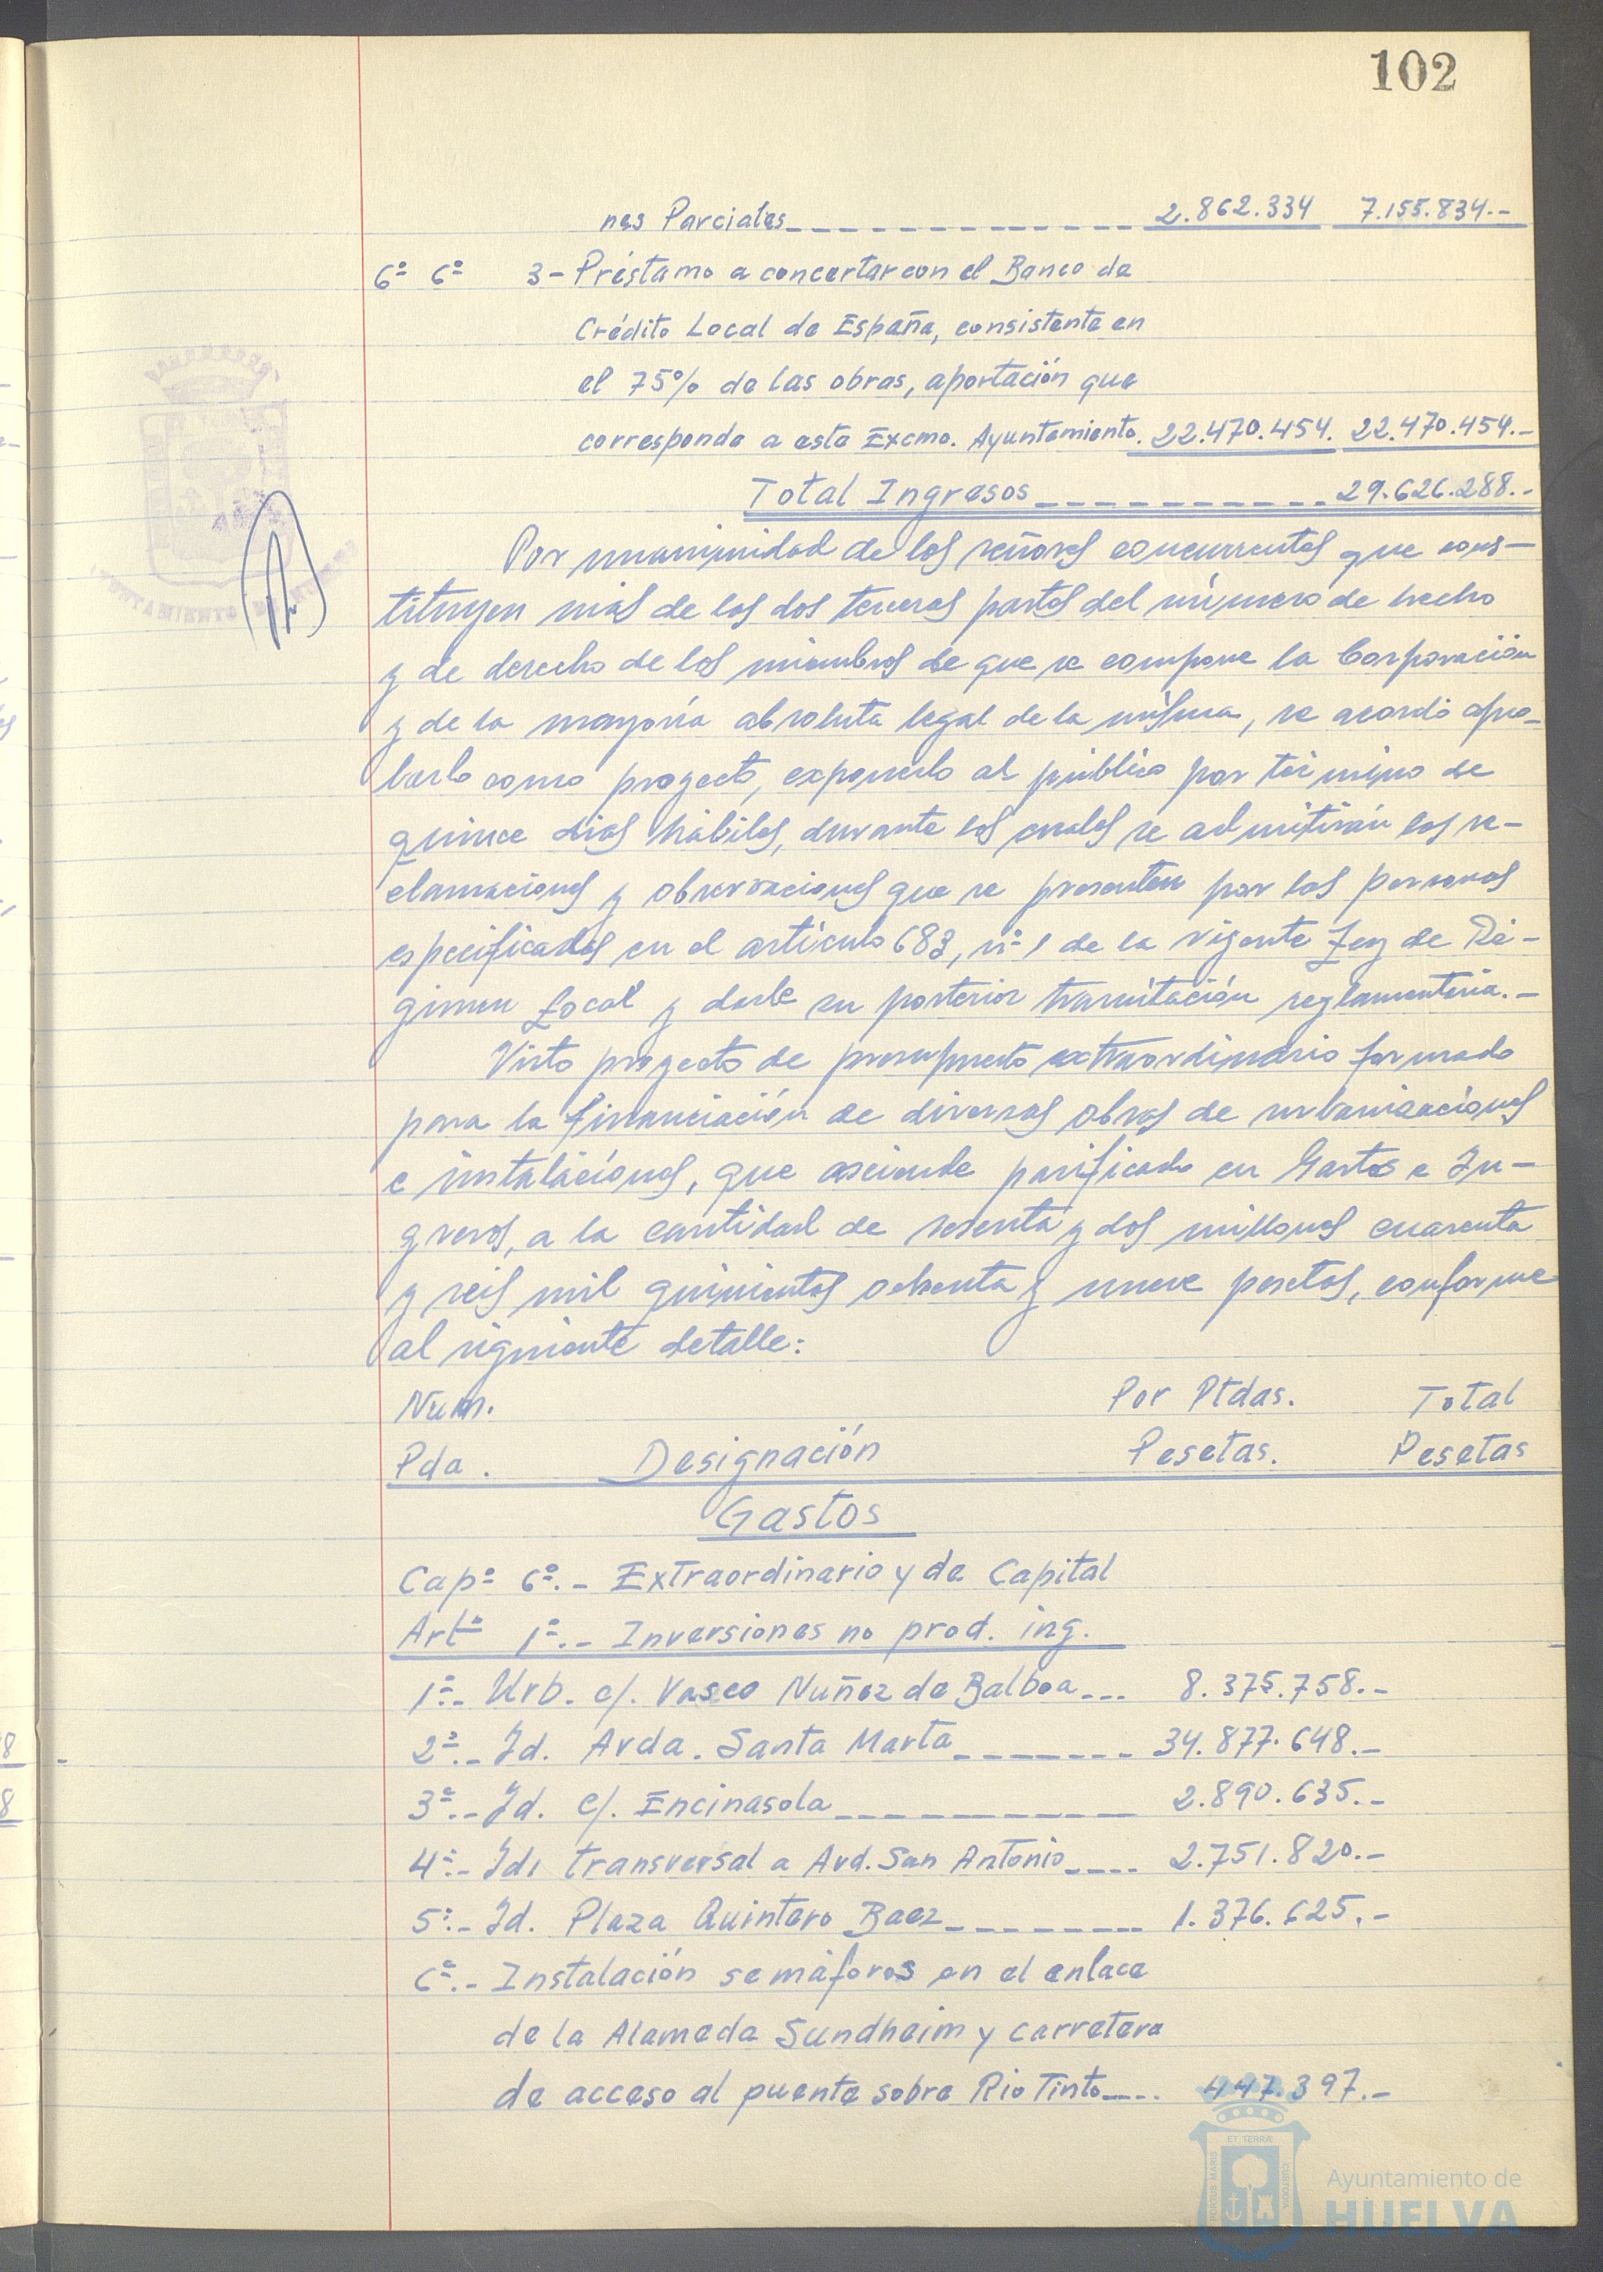 102
nes Parciales 2.862.334 7.155.834.-
6º 6º 3- Préstamo a concertar con el Banco de
Crédito Local de España, consistente en
el 75% de las obras, aportación que
corresponde a este Excmo. Ayuntamiento. 22.470.454. 22.470.454.-
Total Ingresos 29.626.288.-
Por unanimidad de los señores concurrentes que cons-
tituyen más de las dos terceras partes del número de hecho
y de derecho de los miembros de que se compone la Corporación
y de la mayoría absoluta legal de la misma, se acordó apro-
barlo como proyecto, exponerlo al público por término de
quince días hábiles, durante los cuales se admitirán las re-
clamaciones y observaciones que se presenten por las personas
especificadas en el artículo 683, nº 1 de la vigente Ley de Ré-
gimen Local y darle su posterior tramitación reglamentaria.-
Visto proyecto de presupuesto extraordinario formado
para la financiación de diversas obras de urbanizaciones
e instalaciones, que asciende parificado en Gastos e In-
gresos, a la cantidad de sesenta y dos millones cuarenta
y seis mil quinientas ochenta y nueve pesetas, conforme
al siguiente detalle:
Num. Por Ptdas. Total
Pda. Designación Pesetas. Pesetas
Gastos
Capº 6º.- Extraordinario y de Capital
Artº 1º.- Inversiones no prod. ing.
1ª.- Urb. c/. Vasco Nuñez de Balboa 8.375.758.-
2ª.- Id. Avda. Santa Marta 34.877.648.-
3ª.- Id. c/. Encinasola 2.890.635.-
4ª.- Id. transversal a Avd. San Antonio 2.751.820.-
5ª.- Id. Plaza Quintero Baez 1.376.625.-
6ª.- Instalación semáforos en el enlace
de la Alameda Sundheim y carretera
de acceso al puente sobre Rio Tinto 447.397.-
ET TERRÆ
PORTUS MARIS
CUSTODIA
Ayuntamiento de
HUELVA